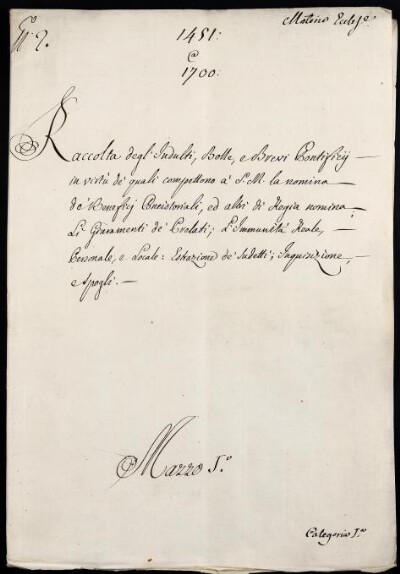 N.º 2.
Materie Eccles.e
1451:
e
1700:
Raccolta degl'Indulti, Bolle, e Brevi Pontificij —
in virtù de' quali competono à S. M. la nomina —
de' Beneficij Concistoriali, ed altri di Regia nomina,
Li Giuramenti de' Prelati; L'Immunità Reale, —
Personale, e Locale: Estrazione de' Sudetti; Inquisizione,
e Spogli. —
Mazzo I.º
Categoria I.ma